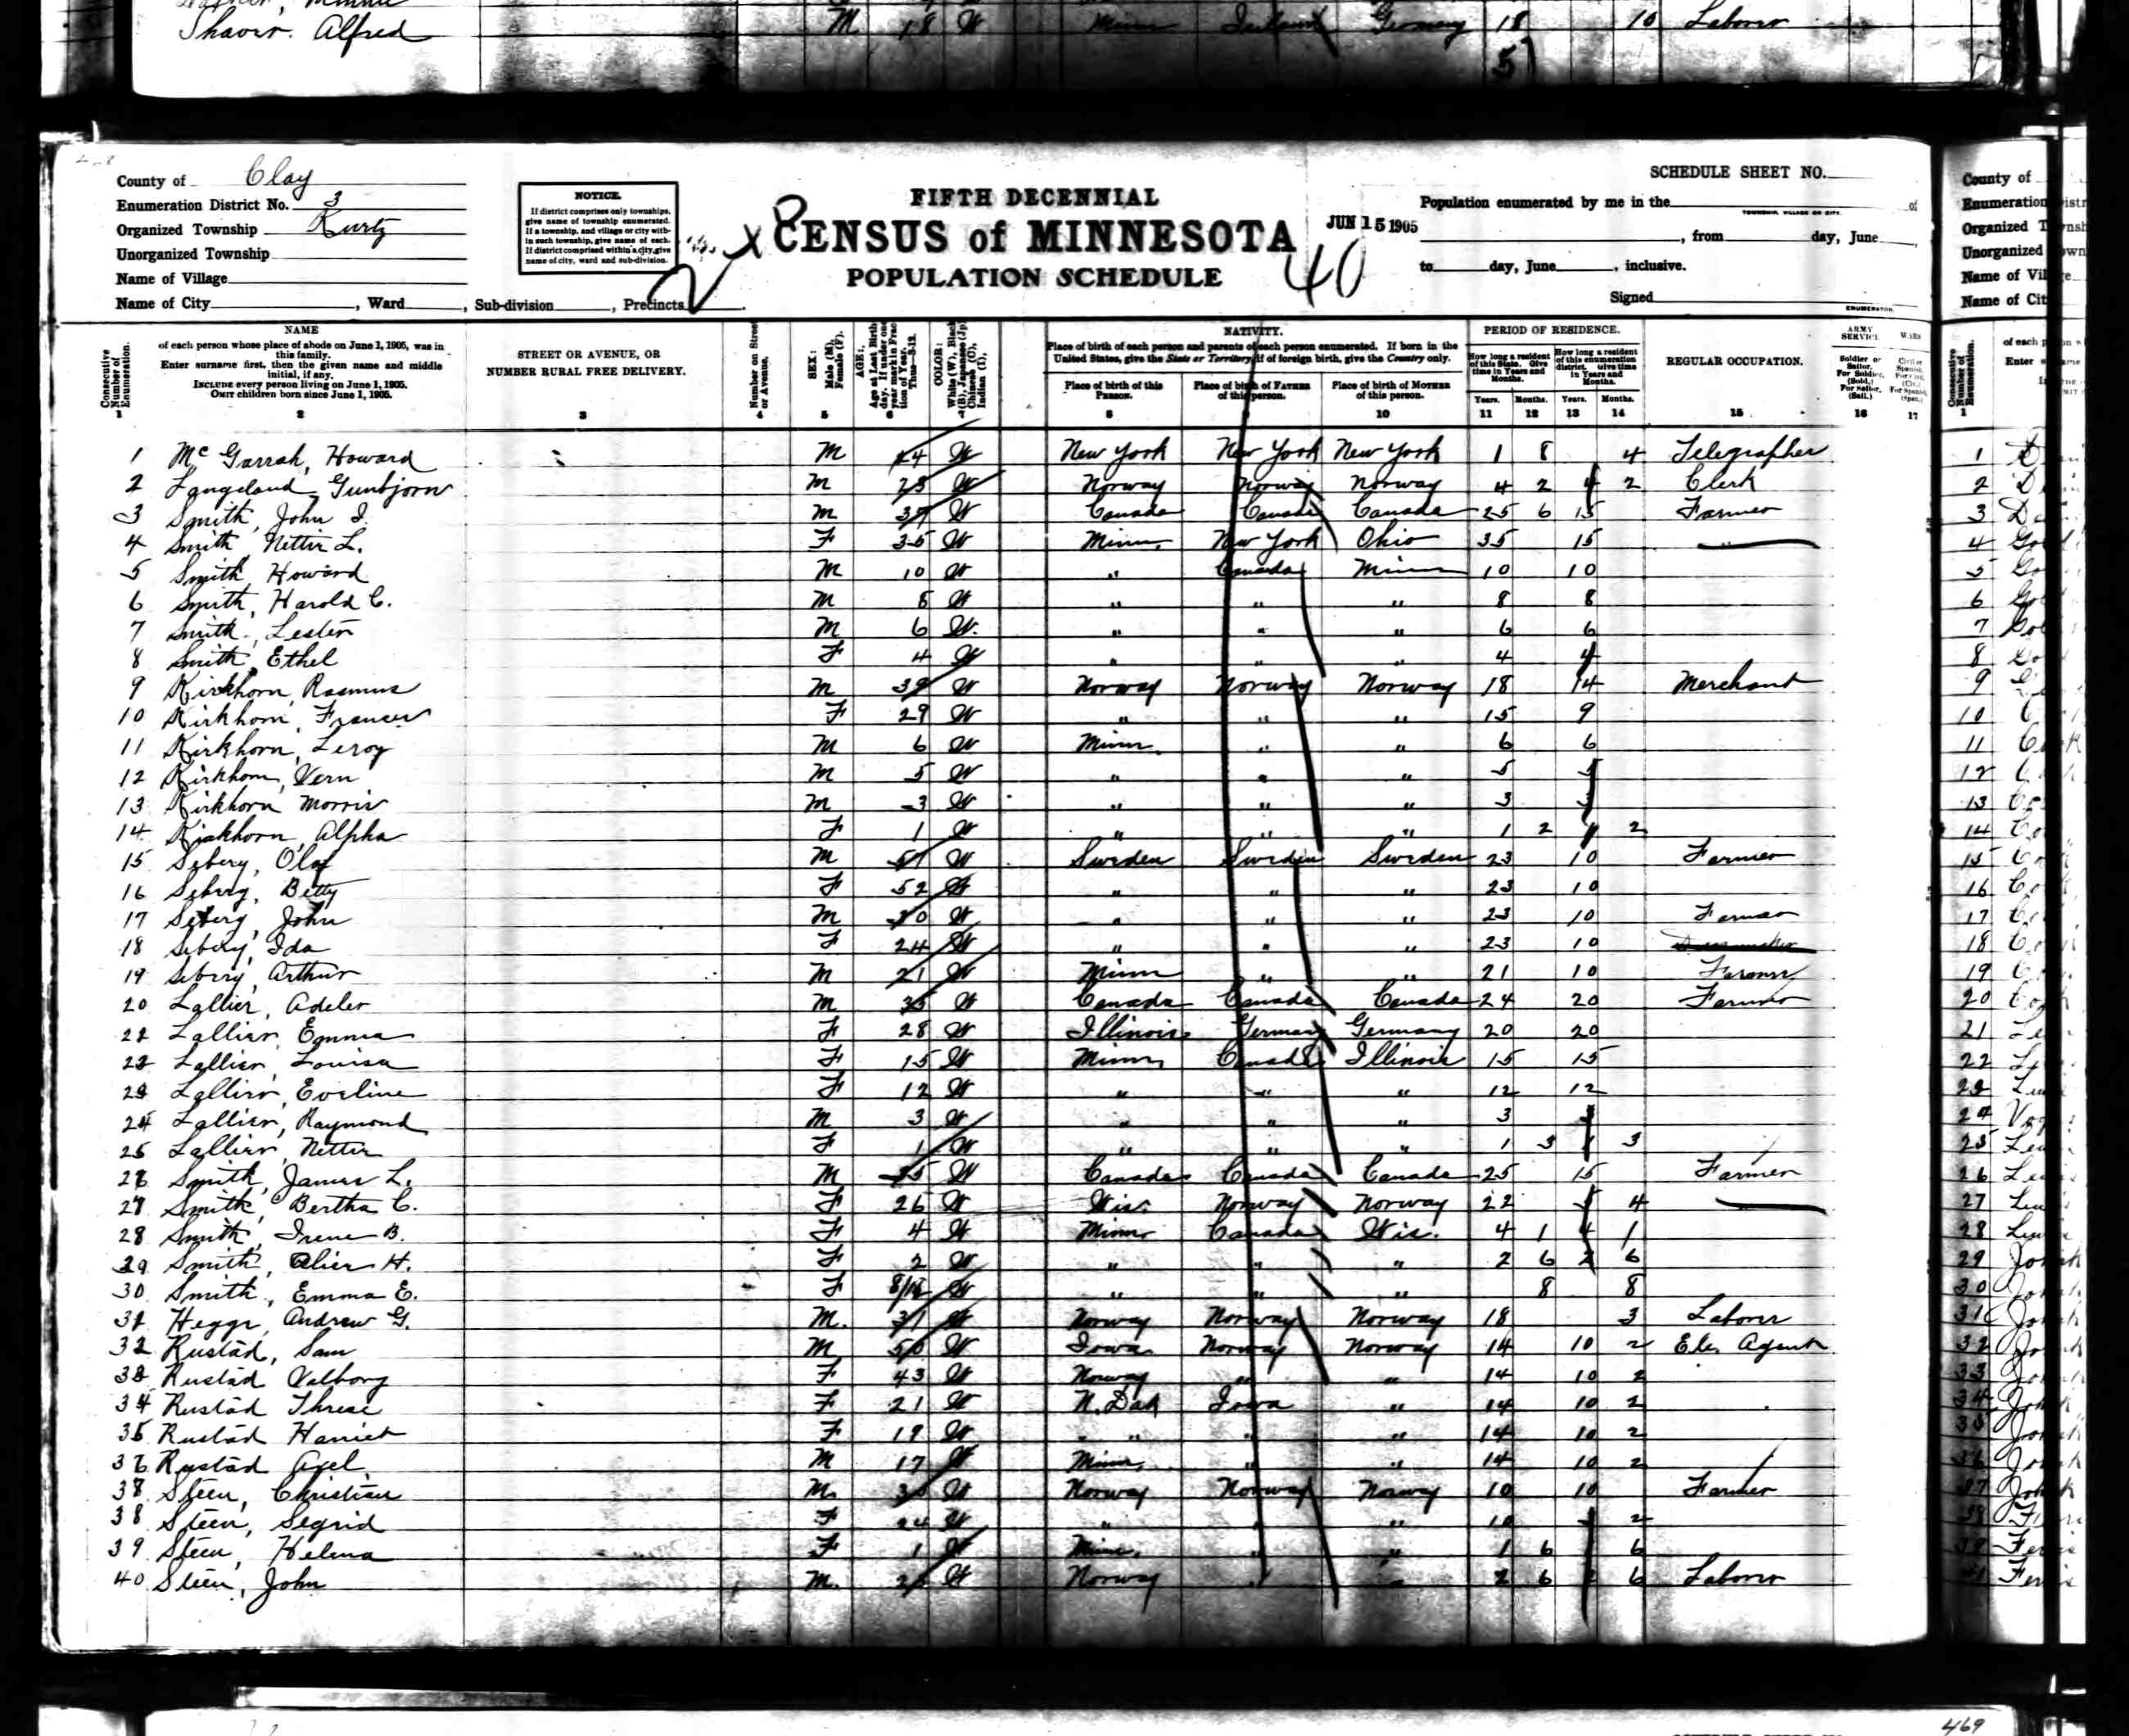 Shaver. Alfred M 18 W Minn Germany 18 10 Laborer
5
County of Clay
Enumeration District No. 3
Organized Township Kurtz
Unorganized Township
Name of Village
Name of City , Ward , Sub-division , Precincts
NOTICE.
If district comprises only townships,
give name of township enumerated.
If a township, and village or city with-
in such township, give name of each.
If district comprised within a city, give
name of city, ward and sub-division.
FIFTH DECENNIAL
CENSUS of MINNESOTA
POPULATION SCHEDULE
JUN 15 1905
40
SCHEDULE SHEET NO.
Population enumerated by me in the of
TOWNSHIP, VILLAGE OR CITY.
, from day, June ,
to day, June , inclusive.
Signed
ENUMERATOR.
Consecutive Number of Enumeration. 1
NAME
of each person whose place of abode on June 1, 1905, was in
this family.
Enter surname first, then the given name and middle
initial, if any.
INCLUDE every person living on June 1, 1905.
OMIT children born since June 1, 1905.
2
STREET OR AVENUE, OR
NUMBER RURAL FREE DELIVERY.
3
Number on Street or Avenue. 4
SEX: Male (M), Female (F). 5
AGE: Age at Last Birthday. If under one year mark in Fraction of Year. Thus—3-12. 6
COLOR: White (W), Black (B), Japanese (Jp), Chinese (C), Indian (I). 7
NATIVITY.
Place of birth of each person and parents of each person enumerated. If born in the
United States, give the State or Territory; if of foreign birth, give the Country only.
Place of birth of this PERSON. 8
Place of birth of FATHER of this person. 9
Place of birth of MOTHER of this person. 10
PERIOD OF RESIDENCE.
How long a resident of this State. Give time in Years and Months.
How long a resident of this enumeration district. Give time in Years and Months.
Years. Months. Years. Months.
11 12 13 14
REGULAR OCCUPATION.
15
ARMY SERVICE.
Soldier or Sailor. For Soldier, (Sold.) For Sailor, (Sail.)
16
WARS
17
1 McGarrah, Howard M 24 W New York New York New York 1 8 4 Telegrapher
2 Langeland, Gunbjorn M 23 W Norway Norway Norway 4 2 4 2 Clerk
3 Smith, John I. M 37 W Canada Canada Canada 25 6 15 Farmer
4 Smith Nettie L. F 35 W Minn. New York Ohio 35 15
5 Smith Howard M 10 W " Canada Minn 10 10
6 Smith, Harold C. M 8 W " " " 8 8
7 Smith, Lester M 6 W. " " " 6 6
8 Smith, Ethel F 4 W " " " 4 4
9 Kirkhorn Rasmus M 39 W Norway Norway Norway 18 14 Merchant
10 Kirkhorn, Frances F 29 W " " " 15 9
11 Kirkhorn, Leroy M 6 W Minn. " " 6 6
12 Kirkhorn, Vern M 5 W " " " 5 5
13 Kirkhorn Morris M 3 W " " " 3 3
14 Kirkhorn, Alpha F 1 W " " " 1 2 1 2
15 Seberg, Olaf M 57 W Sweden Sweden Sweden 23 10 Farmer
16 Seberg, Betty F 52 W " " " 23 10
17 Seberg, John M 30 W " " " 23 10 Farmer
18 Seberg, Ida F 24 W " " " 23 10
19 Seberg, Arthur M 21 W Minn " " 21 10 Farmer
20 Lallier, Adeler M 35 W Canada Canada Canada 24 20 Farmer
21 Lallier, Emma F 28 W Illinois Germany Germany 20 20
22 Lallier, Louisa F 15 W Minn Canada Illinois 15 15
23 Lallier, Eveline F 12 W " " " 12 12
24 Lallier, Raymond M 3 W " " " 3 3
25 Lallier, Nettie F 1 W " " " 1 3 1 3
26 Smith, James L. M 35 W Canada Canada Canada 25 15 Farmer
27 Smith, Bertha C. F 26 W Wis. Norway Norway 22 5 4
28 Smith, Irene B. F 4 W Minn Canada Wis. 4 1 4 1
29 Smith, Alice H. F 2 W " " " 2 6 2 6
30 Smith, Emma E. F 8/12 W " " " 8 8
31 Hegge, Andrew G. M. 31 W Norway Norway Norway 18 3 Laborer
32 Rustad, Sam M 50 W Iowa Norway Norway 14 10 2 Ele. Agent
33 Rustad Valborg F 43 W Norway " " 14 10 2
34 Rustad Threse F 21 W N. Dak Iowa " 14 10 2
35 Rustad Harriet F 19 W " " " " 14 10 2
36 Rustad Axel M 17 W Minn. " " 14 10 2
38 Steen, Christian M. 30 W Norway Norway Norway 10 10 Farmer
38 Steen, Segrid F 24 W " " " 10 2
39 Steen, Helena F 1 W Minn. " " 1 6 6
40 Steen, John M. W Norway " " 2 6 2 6 Laborer
469